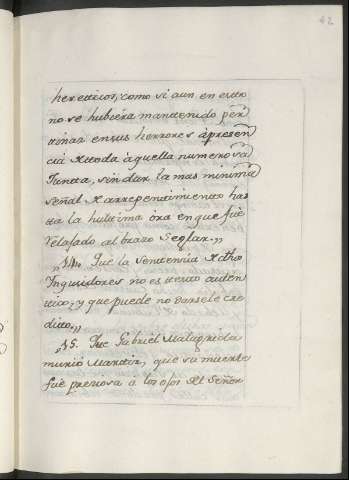 42
heretticos, como si aun en esto
no se hubiera mantenido per
tinas en sus herrores à presen
cia de toda àquella numerosa
Juntta, sin dar la mas minima
señal de arrepentimiento has
ta la hulttima óra en que fuè
relajado al brazo Seglar.,,
,,14. Que la Senttencia de dhos
Inquisidores no es testo auten
tico, y que puede no darsele cre
ditto.,,
,,15. Que Gabriel Malagrida
murió Marttir, que su muerte
fuè preciosa a los ojos del Señor